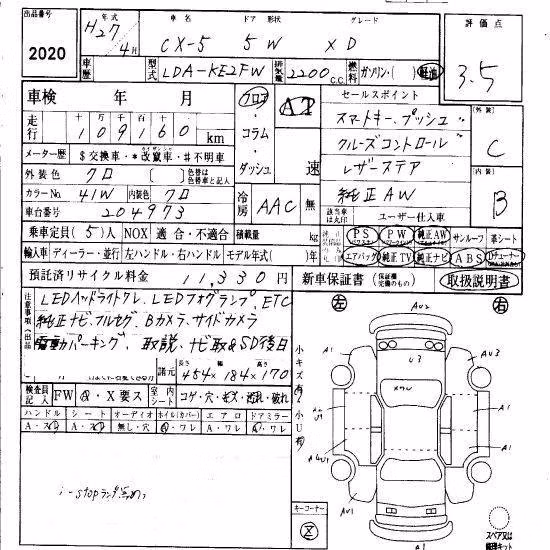 出品番号
2020
年式 車名 ドア 形状 グレード
H27 4月 CX-5 5W XD
評価点
3.5
車歴
型式 LDA-KE2FW 排気量 2200 C.C. 燃料 ガソリン・( ) 軽油
車検 年 月
フロア・コラム・ダッシュ
AT
速
セールスポイント
スマートキー、プッシュ
クルーズコントロール
レザーステア
純正AW
外装
C
内装
B
走行 十 万 千 百 十
109160 km
メーター歴 $ 交換車・* 改竄車・# 不明車
外装色 クロ ( ) 色替は色替車と記入
カラーNo. 41W 内装色 クロ
車台番号 204973
冷房 AAC 無
該当車は丸印 ユーザー仕入車
乗車定員 (5)人 NOX 適合・不適合 積載量 kg
純正装備 PS PW 純正AW サンルーフ 革シート
エアバッグ 純正TV 純正ナビ ABS
輸入車 ディーラー・並行 左ハンドル・右ハンドル モデル年式( )年
預託済リサイクル料金 11,330円
新車保証書 (保証欄完備のもの) 取扱説明書
注意事項
LEDヘッドライト LEDフォグランプ、ETC
純正ナビ、フルセグ、Bカメラ、サイドカメラ
電動パーキング、取説、ナビ取&SD後日
諸元 長さ 幅 高さ
454×184×170
検査員記入 FW Ⓐ・X要ス 室内シート コゲ・穴・キズ・汚れ・破れ
ハンドル シート オーディオ ホイル(カバー) エアロ ドアミラー
A・ス A・ス 無し・穴 A・ワレ A・ワレ A・ワレ
i-stopランプ点めつ
左 右
AU2
A1 U3 AU3
A1
A1
A4U1
AU1
A1
小キズ有 小U有
コーナー
スペア又は修理キット